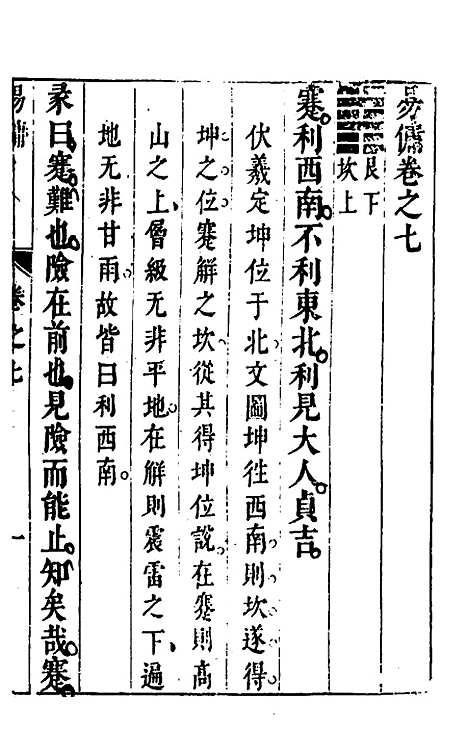 易傭卷之七
艮下
坎上
蹇利西南不利東北利見大人貞吉
伏羲定坤位于北文圖坤徃西南則坎遂得
坤之位蹇解之坎從其得坤位說在蹇則高
山之上層級无非平地在解則震雷之下遍
地无非甘雨故皆曰利西南
彖曰蹇難也險在前也見險而能止知矣哉蹇
易傭
卷之七
一